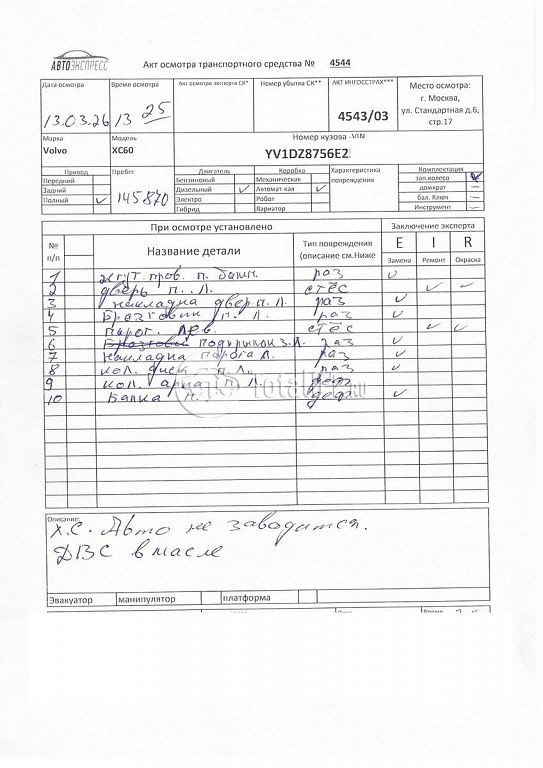 АВТОЭКСПРЕСС
Акт осмотра транспортного средства № 4544
Дата осмотра Время осмотра Акт осмотра эксперта СК* Номер убытка СК** АКТ ИНГОССТРАХ*** Место осмотра:
13.03.26 13 25 4543/03 г. Москва,
ул. Стандартная д.6,
стр.17
Марка Модель Номер кузова -VIN
Volvo XC60 YV1DZ8756E2
Привод Пробег Двигатель Коробка Характеристика повреждения Комплектация
Передний 145870 Бензиновый Механическая зап.колесо ✓
Задний Дизельный ✓ Автомат-кая ✓ домкрат –
Полный ✓ Электро Робот бал. Ключ –
Гибрид Вариатор Инструмент –
При осмотре установлено Заключение эксперта
№ п/п Название детали Тип повреждения (описание см.Ниже E I R
Замена Ремонт Окраска
1 жгут. пров. п. бамп. раз ✓
2 дверь п. Л. стёс ✓ ✓
3 накладка двер.п.Л. раз ✓
4 Брызговик п. Л. раз ✓
5 порог. лев. стёс ✓ ✓
6 Брызговик подкрылок з.Л. раз ✓
7 накладка порога Л. раз ✓
8 кол. диск п. Л. раз ✓
9 кол. арка п. Л. деф
10 Балка п. деф ✓
Total
.ru
Описание:
Х.С. Авто не заводится.
ДВС в масле
Эвакуатор манипулятор платформа